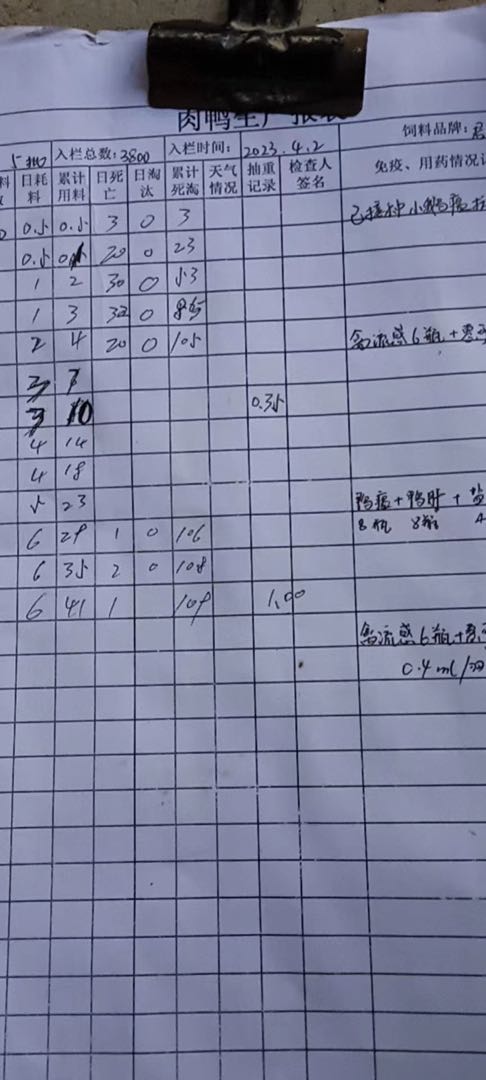 肉鸭生产报表
5批 入栏总数:3800 入栏时间: 2023.4.2 饲料品牌:
日耗料 累计用料 日死亡 日淘汰 累计死淘 天气情况 抽重记录 检查人签名 免疫、用药情况
0.5 0.5 3 0 3 已接种小鹅瘟
0.5 20 0 23
1 2 30 0 53
1 3 32 0 85
2 4 20 0 105 禽流感6瓶+
3 7
3 10 0.35
4 14
4 18
5 23 鸭瘟+鸭肝+
8瓶 8瓶
6 29 1 0 106
6 35 2 0 108
6 41 1 109 1.00
禽流感6瓶+
0.4ml/羽